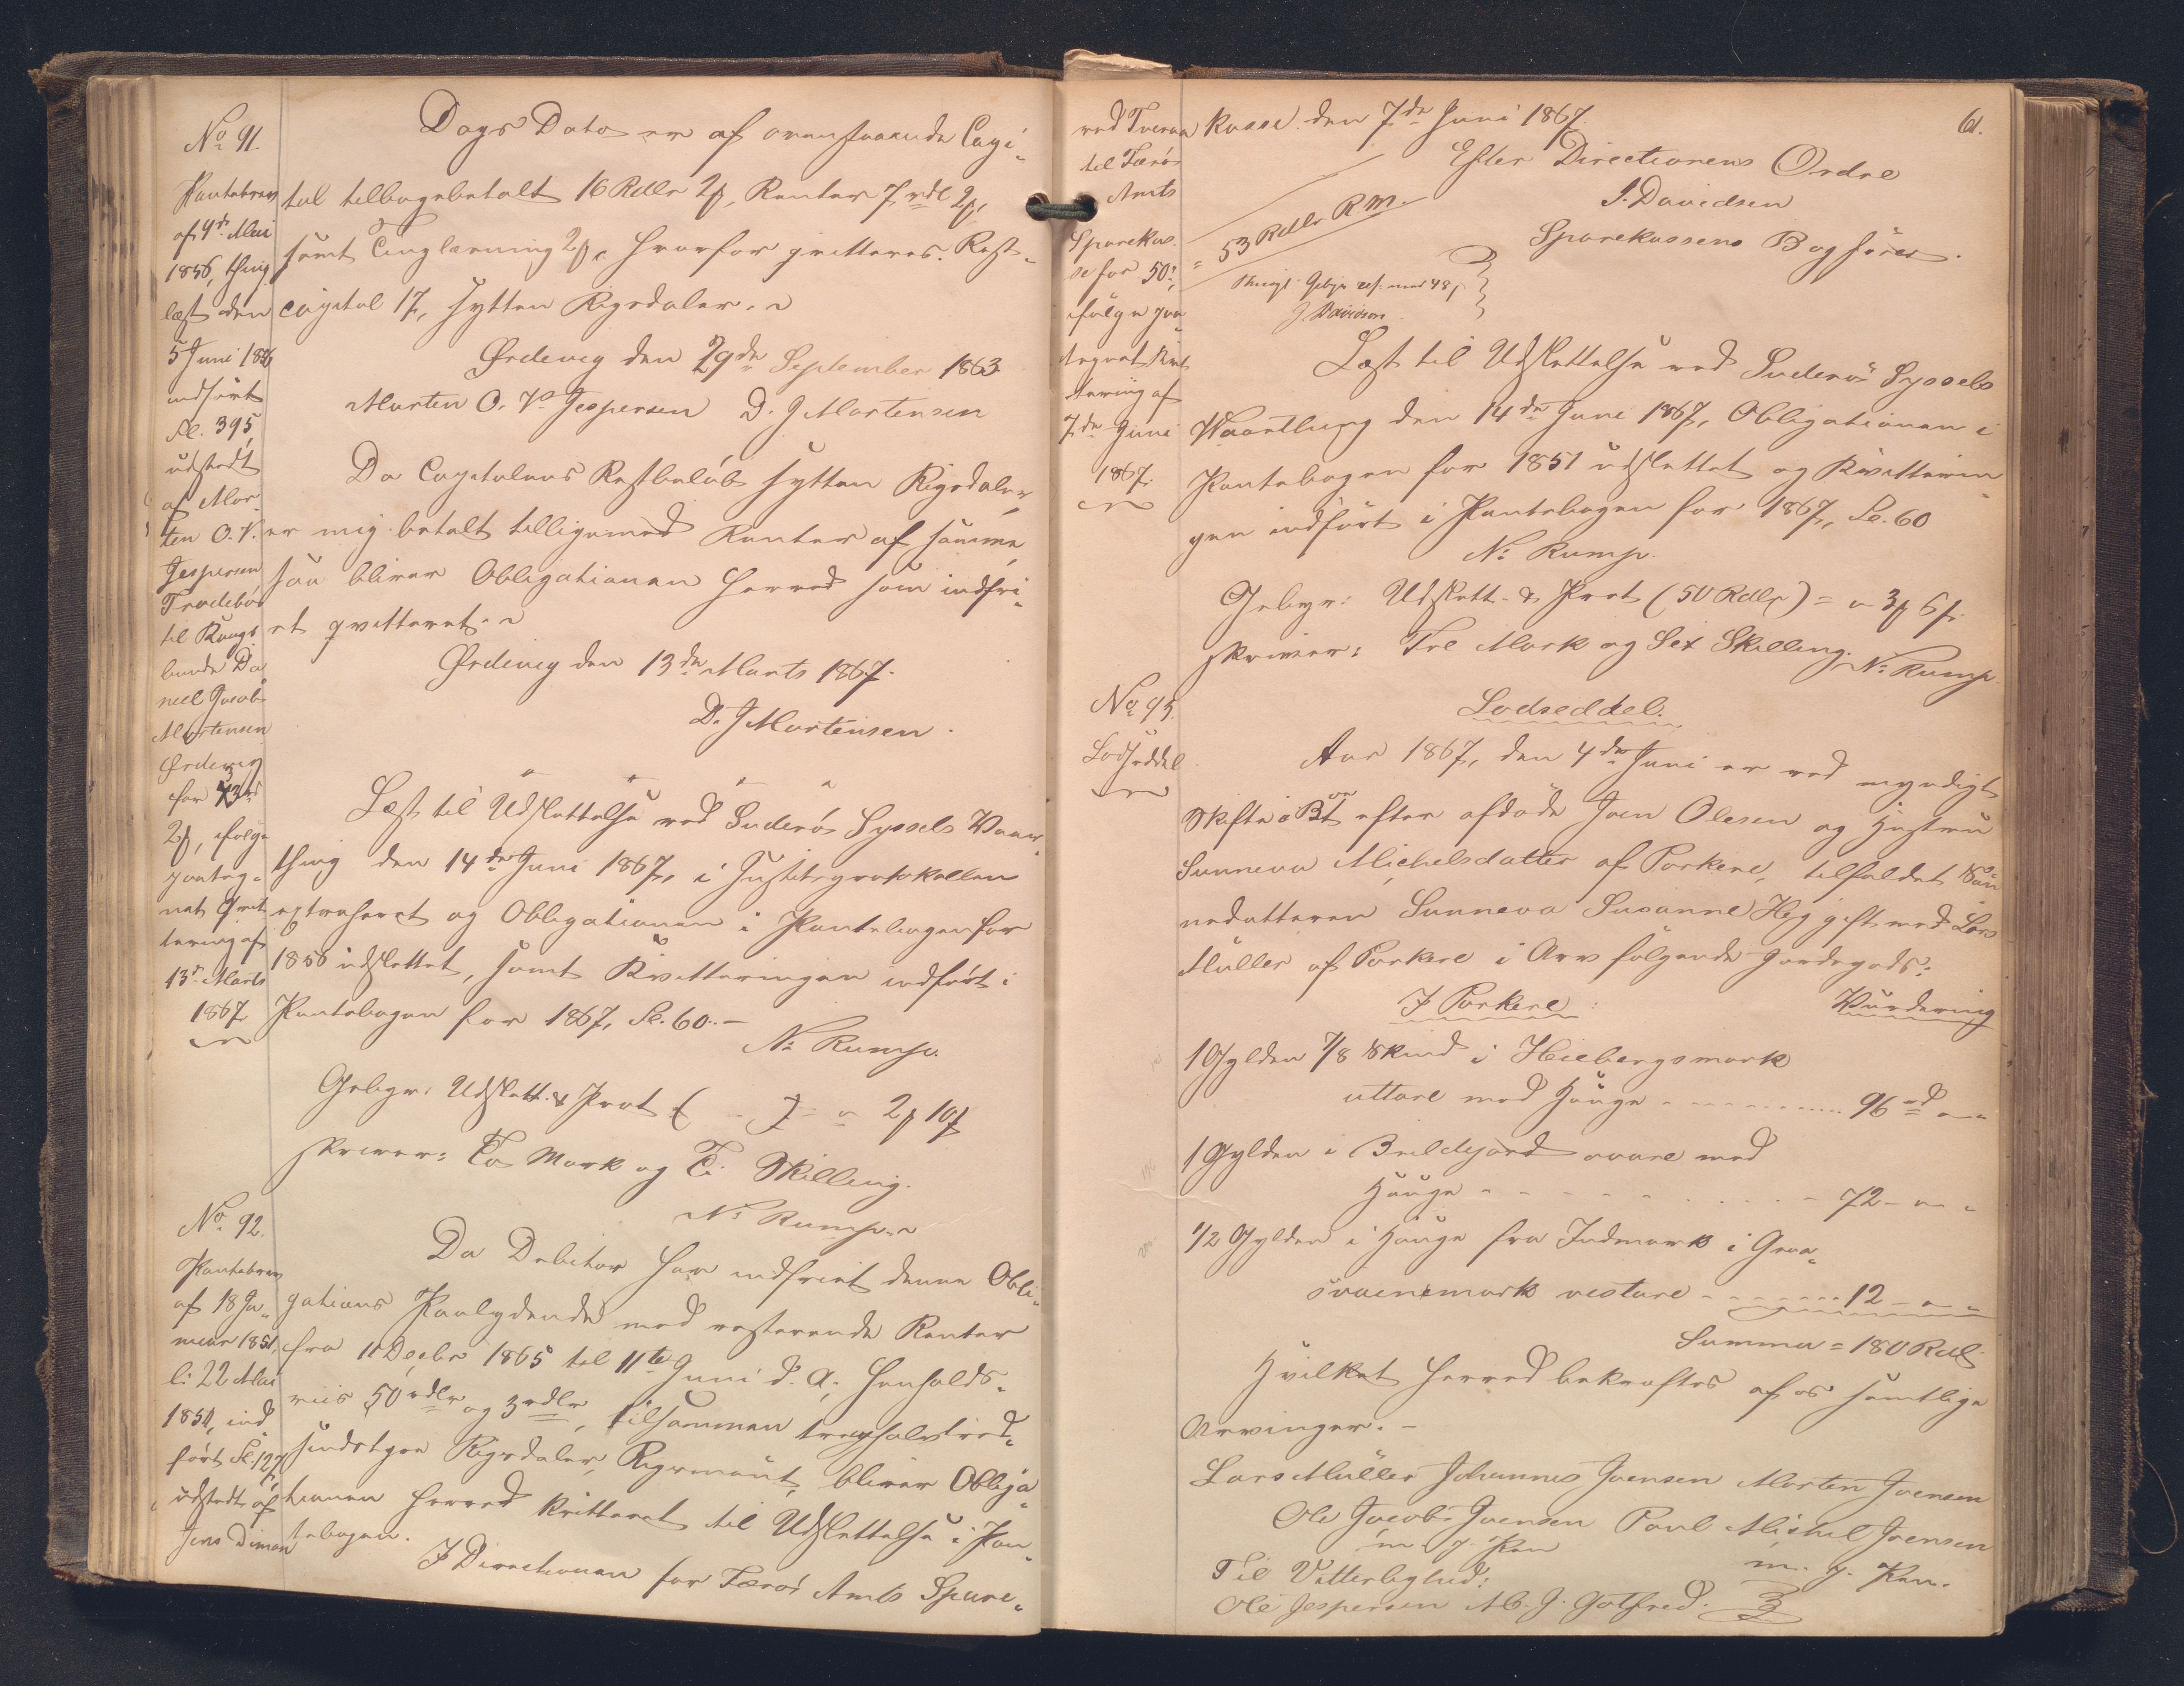 No 91.
Pantebrev
af 9de Mai
1856, thing-
læst den
5 Juni 1856
indført
Fol. 395,
udstedt
af Mor-
ten O. V.
Jespersen
Frodebø
til Kongs-
bonde Da-
niel Jacob
Mortensen
Ørdevig
for 33 rd
2 ß, ifølge
paateg-
net Qvit-
tering af
13de Marts
1867.
Dags Dato er af ovenstaaende Capi-
tal tilbagebetalt 16 Rdlr 2 ß, Renter 7 rdl 2 ß,
samt Tinglæsning 2 ß, hvorfor qvitteres. Rest-
capital 17, sytten Rigsdaler.
Ørdevig den 29de September 1863
Morten O. V. Jespersen D. J Mortensen
Da Capitalens Restbeløb sytten Rigsdaler
er mig betalt tilligemed Renter af samme,
saa bliver Obligationen herved som indfri-
et qvitteret.
Ørdevig den 13de Marts 1867.
D. J Mortensen.
Læst til Udslettelse ved Suderø Syssels Vaar-
thing den 14de Juni 1867, i Justitsprotokollen
extraheret og Obligationen i Pantebogen for
1856 udslettet, samt Kvitteringen indført i
Pantebogen for 1867, Fol. 60.
N: Rump.
Gebyr: Udslett. & Prot ( ) = " 2 ß 10 ß
skriver: To Mark og Ti Skilling.
N: Rump.
No 92.
Pantebrev
af 18 Ja-
nuar 1851,
l: 22 Mai
1851, ind-
ført Fol. 127,
udstedt af
Jens Dimon
Da Debitor har indfriet denne Obli-
gations Paalydende med resterende Renter
fra 11 Decbr 1865 til 11te Juni d. A., henholds-
viis 50 rdlr og 3 rdlr, tilsammen trehalvtred-
sindstyve Rigsdaler, Rigsmønt, bliver Obliga-
tionen herved kvitteret til Udslettelse i Pan-
tebogen.
I Directionen for Færø Amts Spare-
61.
ved Tveraa
til Færø
Amts
Sparekas-
se for 50
ifølge paa-
tegnet Kvit-
tering af
7de Juni
1867.
kasse den 7de Juni 1867.
Efter Directionens Ordre
J. Davidsen
Sparekassens Bogfører.
= 53 Rdlr R.M.
Thingl. Gebyr ref. med 48 ß
J Davidsen.
Læst til Udslettelse ved Suderø Syssels
Vaarthing den 14de Juni 1867, Obligationen i
Pantebogen for 1851 udslettet og Kvitterin-
gen indført i Pantebogen for 1867, Fol. 60
N: Rump.
Gebyr: Udslett. & Prot (50 Rdlr) = " 3 ß 6 ß.
skriver: Tre Mark og Sex Skilling. N: Rump
No 95.
Lodseddel
Lodseddel.
Aar 1867, den 4de Juni er ved myndigt
Skifte i Boet efter afdøde Joen Olesen og Hustru
Sunneva Michelsdatter af Porkere, tilfaldet Søn-
nedatteren Sunneva Susanne Hey gift med Lars
Müller af Porkere i Arv følgende Jordegods:
I Porkere: Vurdering
1 Gylden 7/8 Skind i Heebergsmark
uttare med Hauge 96 rd " "
1 Gylden i Breldgjord ovare med
Hauge 72 - " "
1/2 Gylden i Hauge fra Indmark i Graa-
svaenemark vestare 12 - " "
Summa = 180 Rdl
Hvilket herved bekræftes af os samtlige
Arvinger.
Lars Müller Johannes Joensen Morten Joensen
Ole Jacob Joensen Poul Michel Joensen
m. f. Pen m. f. Pen.
Til Vitterlighed:
Ole Jespersen M. J. Gotfred.